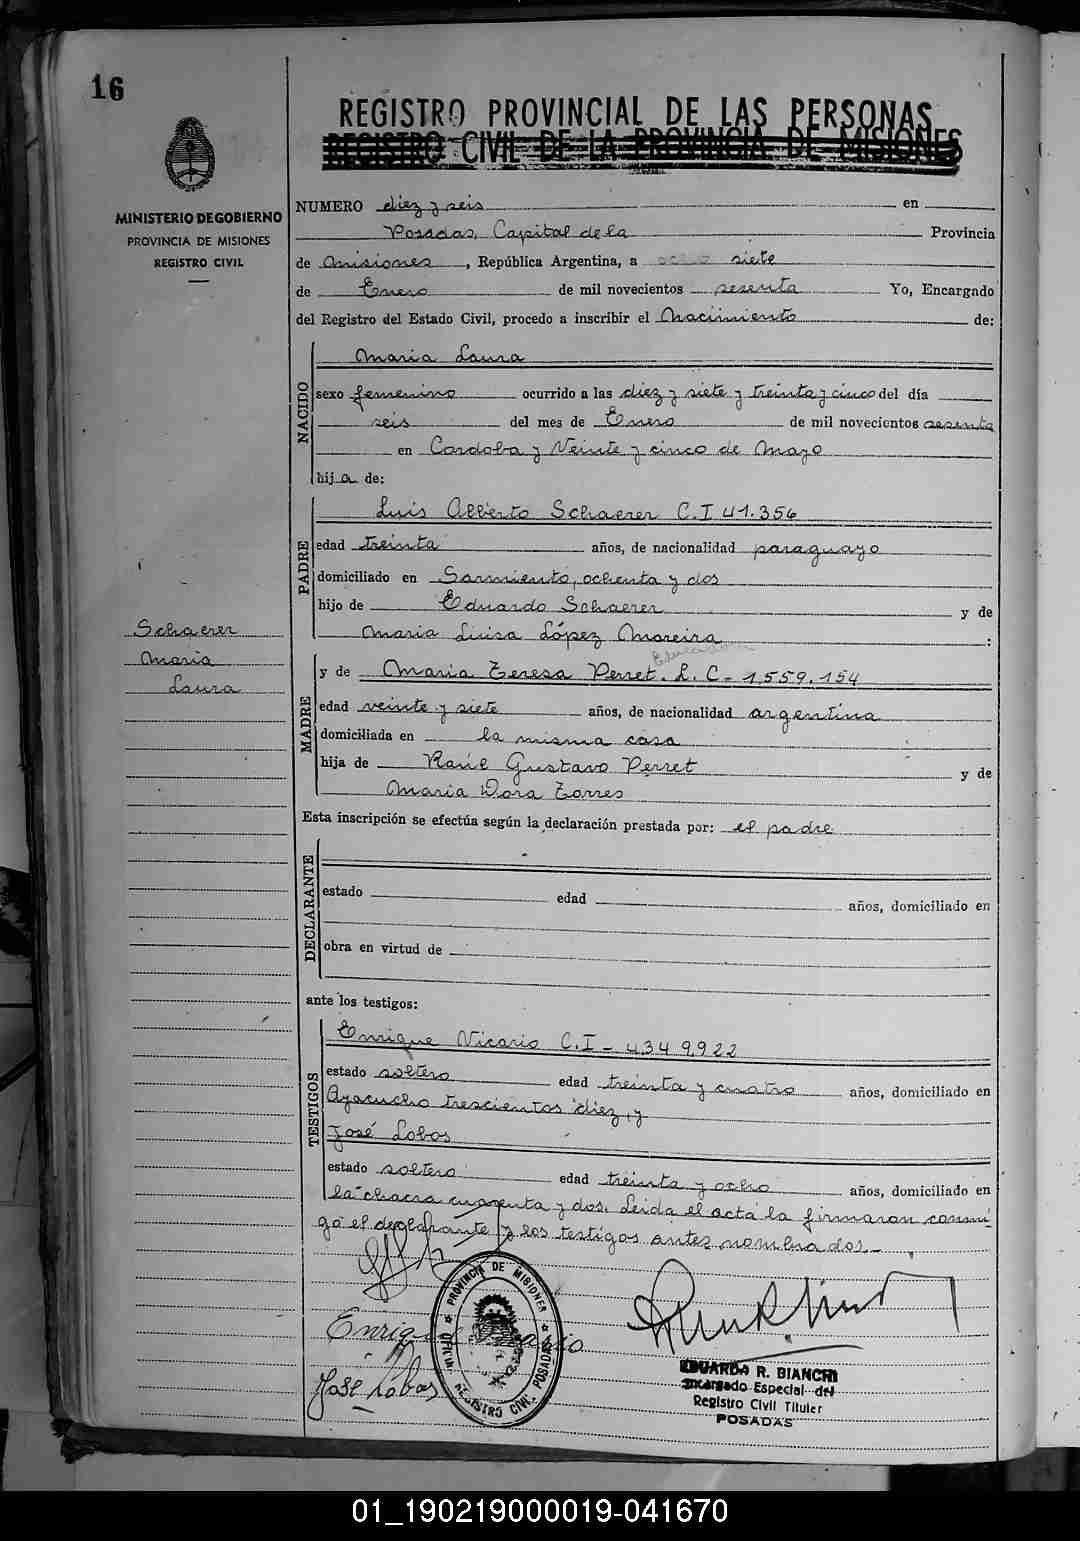 16
REGISTRO PROVINCIAL DE LAS PERSONAS
REGISTRO CIVIL DE LA PROVINCIA DE MISIONES
MINISTERIO DE GOBIERNO
PROVINCIA DE MISIONES
REGISTRO CIVIL
NUMERO diez y seis en
Posadas, Capital de la Provincia
de Misiones, República Argentina, a ocho siete
de Enero de mil novecientos sesenta Yo, Encargado
del Registro del Estado Civil, procedo a inscribir el Nacimiento de:
NACIDO
Maria Laura
sexo femenino ocurrido a las diez y siete y treinta y cinco del día
seis del mes de Enero de mil novecientos sesenta
en Cordoba y Veinte y cinco de Mayo
hija de:
PADRE
Luis Alberto Schaerer C.I 41.356
edad treinta años, de nacionalidad paraguayo
domiciliado en Sarmiento, ochenta y dos
hijo de Eduardo Schaerer y de
Maria Luisa López Moreira :
Schaerer
Maria
Laura
MADRE
y de Maria Teresa Perret. L. C - 1,559.154
edad veinte y siete años, de nacionalidad argentina
domiciliada en la misma casa
hija de Raúl Gustavo Perret y de
Maria Dora Torres
Esta inscripción se efectúa según la declaración prestada por: el padre
DECLARANTE
estado edad años, domiciliado en
obra en virtud de
ante los testigos:
TESTIGOS
Enrique Vicario C.I - 4349922
estado soltero edad treinta y cuatro años, domiciliado en
Ayacucho trescientos diez, y
José Lobos
estado soltero edad treinta y ocho años, domiciliado en
la chacra cuarenta y dos. Leida el acta la firmaron conmi-
go el declarante y los testigos antes nombrados.-
Enrique Vicario
José Lobos
PROVINCIA DE MISIONES
OFICINA REGISTRO CIVIL POSADAS
EDUARDO R. BIANCHI
Encargado Especial del
Registro Civil Titular
POSADAS
01_190219000019-041670